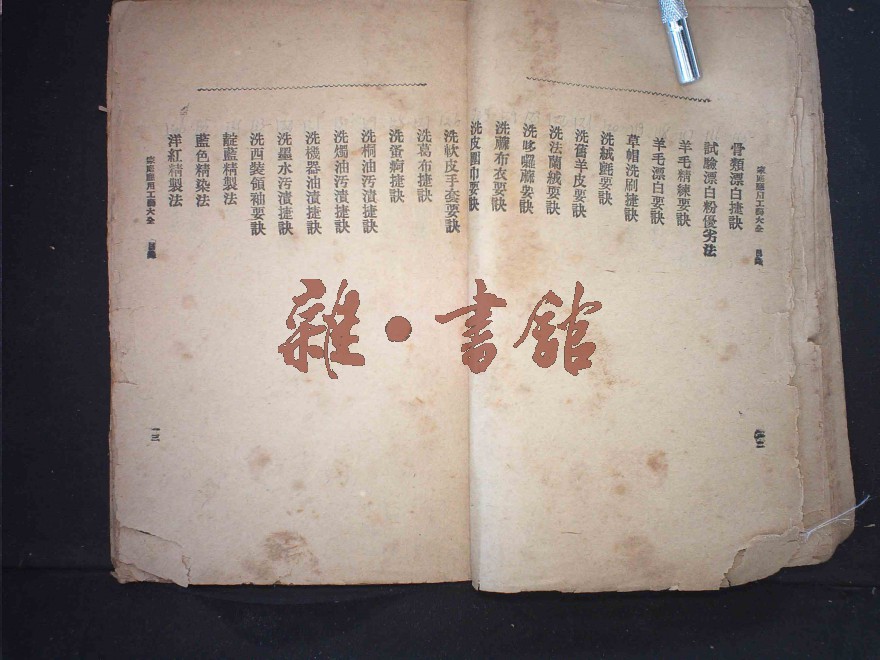 家庭應用工藝大全 目錄
骨類漂白捷訣
試驗漂白粉優劣法
羊毛精練要訣
羊毛漂白要訣
草帽洗刷捷訣
洗絨氈要訣
洗舊羊皮要訣
洗法蘭絨要訣
洗哆囉蔴要訣
洗蔴布衣要訣
洗皮圍巾要訣
洗軟皮手套要訣
洗葛布捷訣
洗蛋痾捷訣
洗桐油汚漬捷訣
洗燭油汚漬捷訣
洗機器油漬捷訣
洗墨水汚漬捷訣
洗西裝領袖要訣
靛藍精製法
藍色精染法
洋紅精製法
家庭應用工藝大全 目錄
一三
雜·書館